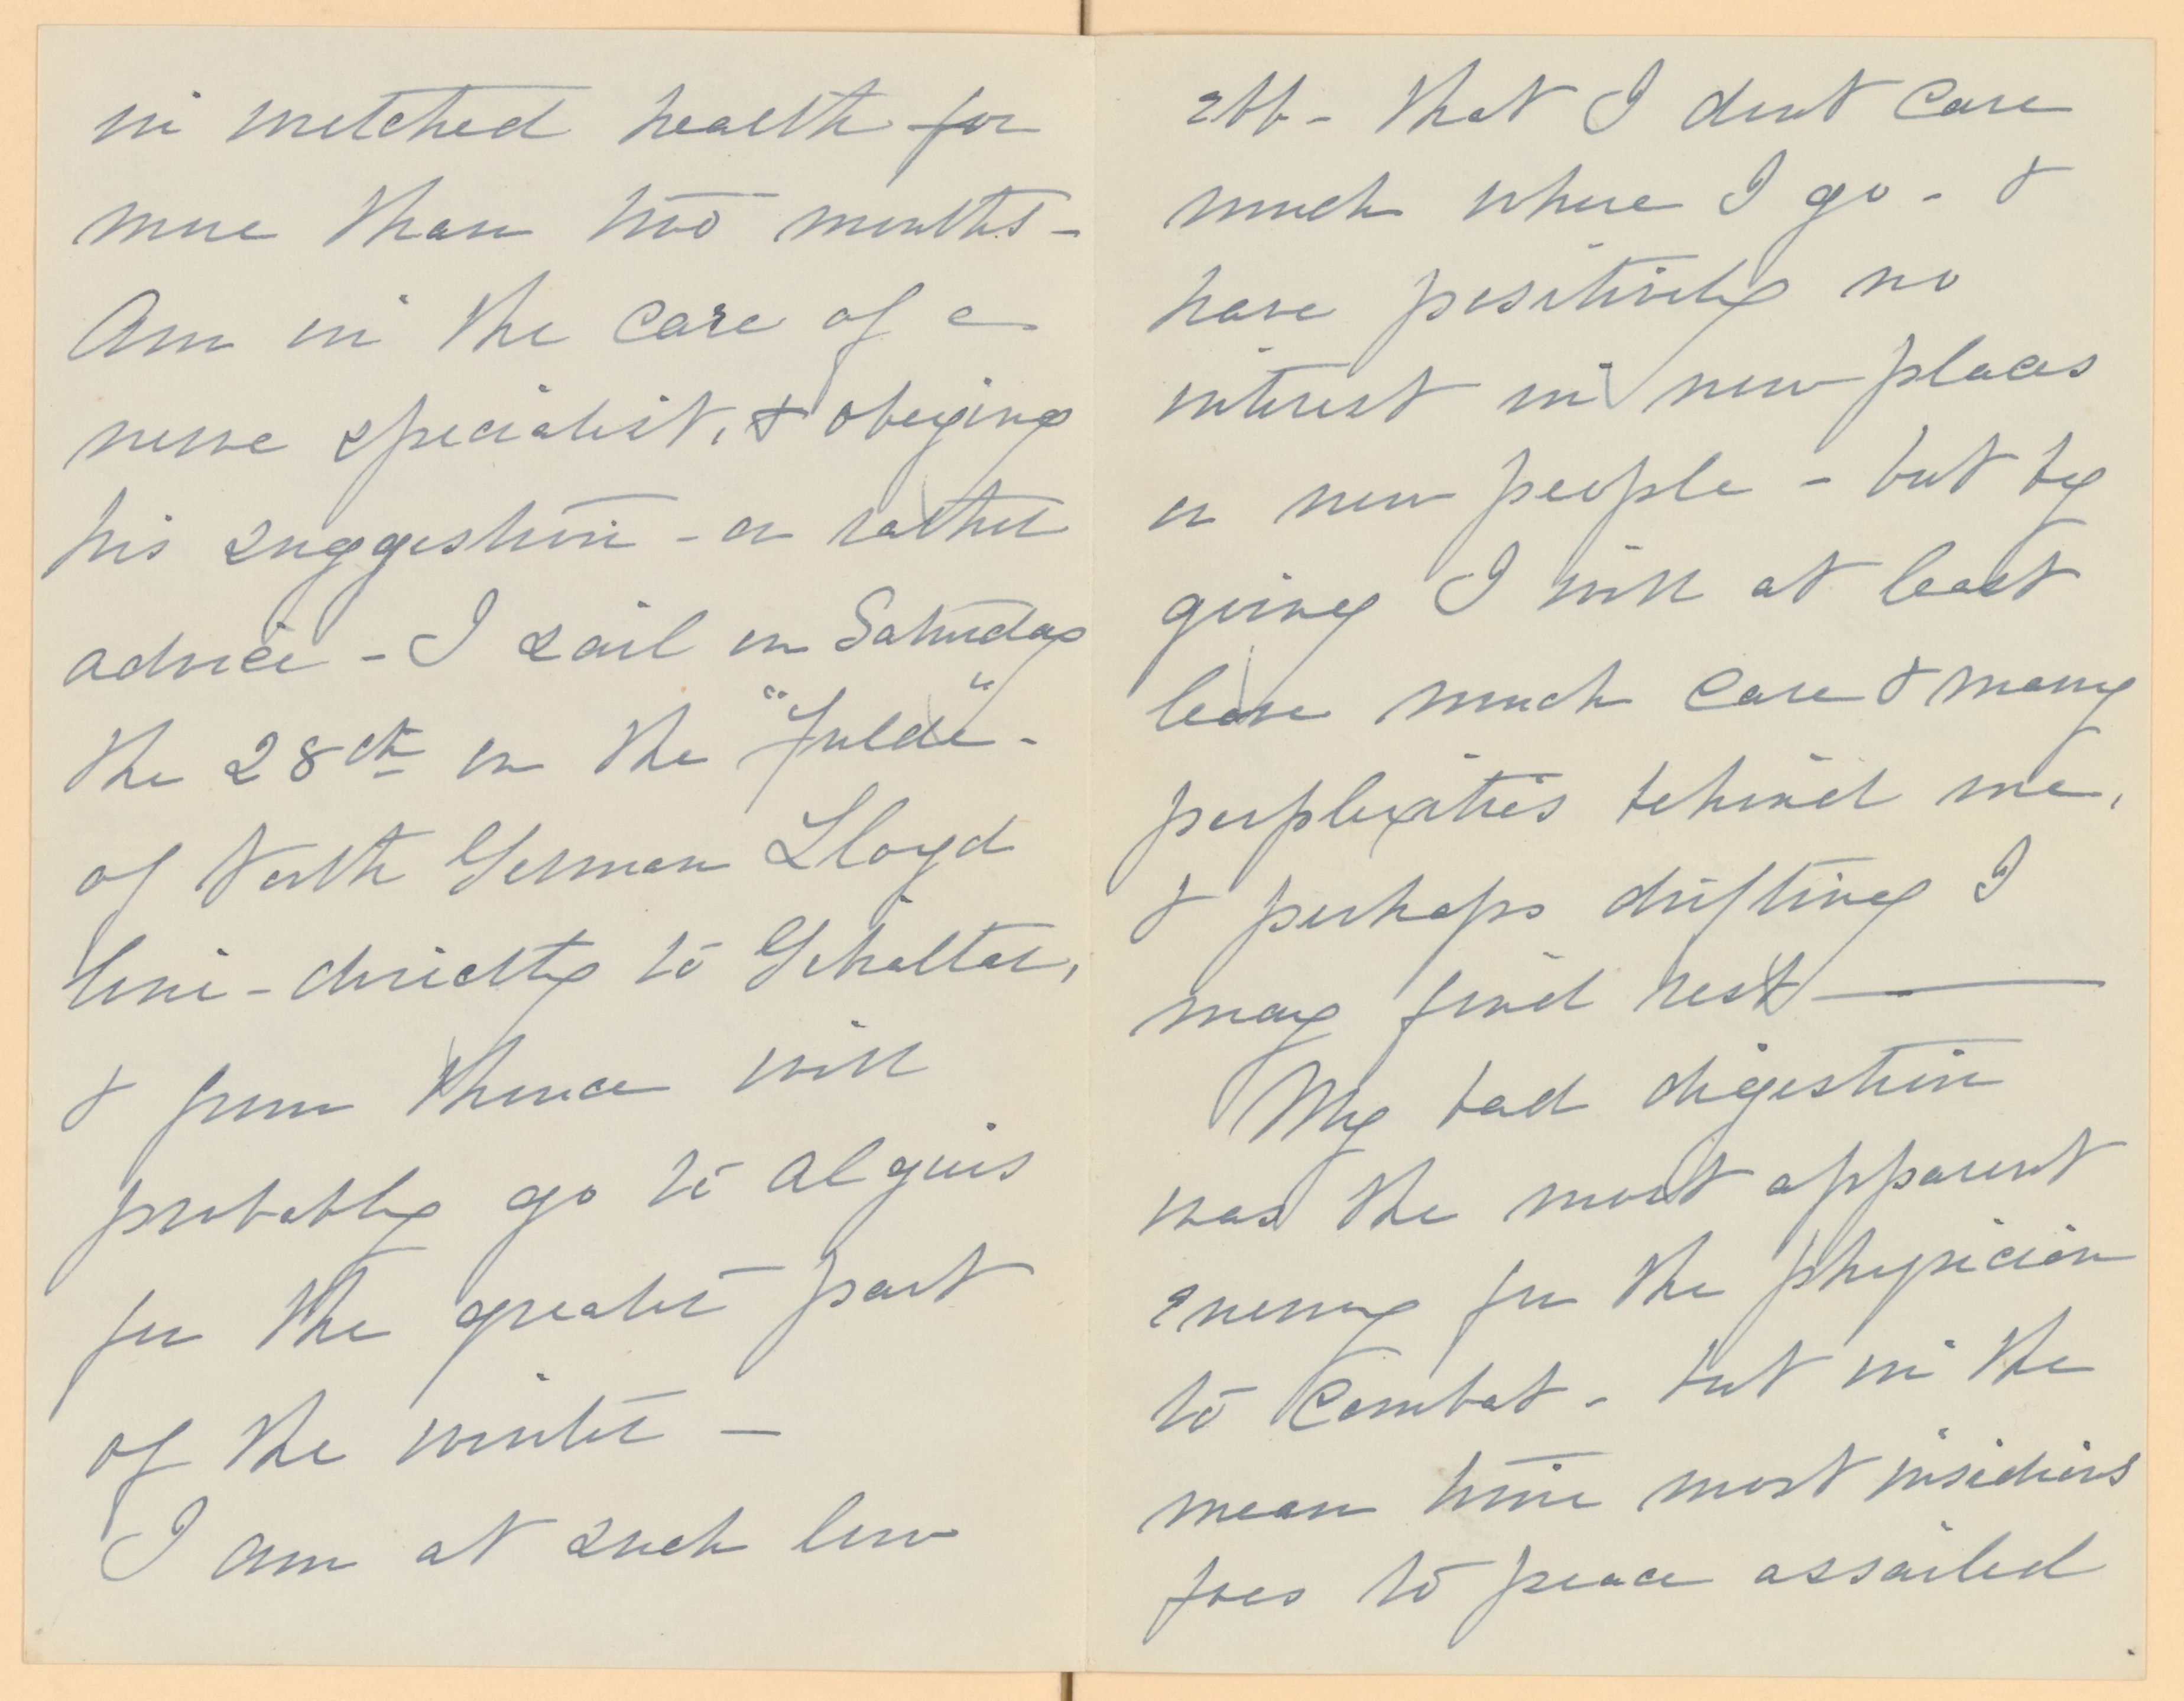 in wretched health for
more than two months -
Am in the care of a
nerve specialist, & obeying
his suggestion - or rather
advice - I sail on Saturday
the 28th on the "Fulda" -
of North German Lloyd
line - directly to Gibraltar,
& from thence will
probably go to Algiers
for the greater part
of the winter -
I am at such low
ebb - that I dont care
much where I go - &
have positively no
interest in new places
or new people - but by
going I will at least
leave much care & many
perplexities behind me,
& perhaps drifting I
may find rest -
My bad digestion
was the most apparent
enemy for the physician
to combat - but in the
mean time most insidious
foes to peace assailed